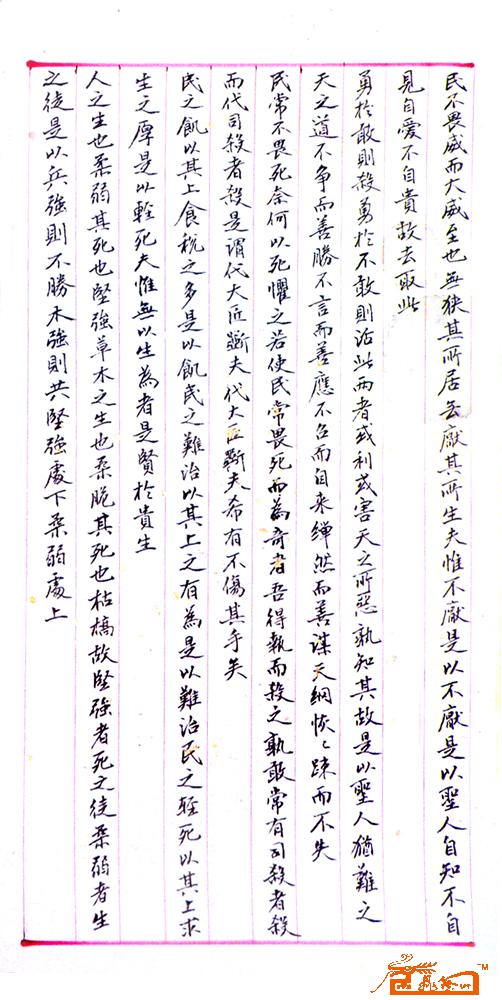 民不畏威而大威至也無狹其所居無厭其所生夫惟不厭是以不厭是以聖人自知不自
見自愛不自貴故去取此
勇於敢則殺勇於不敢則活此兩者或利或害天之所惡孰知其故是以聖人猶難之
天之道不争而善勝不言而善應不召而自来繟然而善謀天網恢〻踈而不失
民常不畏死奈何以死懼之若使民常畏死而為奇者吾得執而殺之孰敢常有司殺者殺
而代司殺者殺是謂代大匠斲夫代大匠斲夫希有不傷其手矣
民之飢以其上食稅之多是以飢民之難治以其上之有為是以難治民之輕死以其上求
生之厚是以輕死夫惟無以生為者是賢於貴生
人之生也柔弱其死也堅強草木之生也柔脆其死也枯槁故堅強者死之徒柔弱者生
之徒是以兵強則不勝木強則共堅強處下柔弱處上